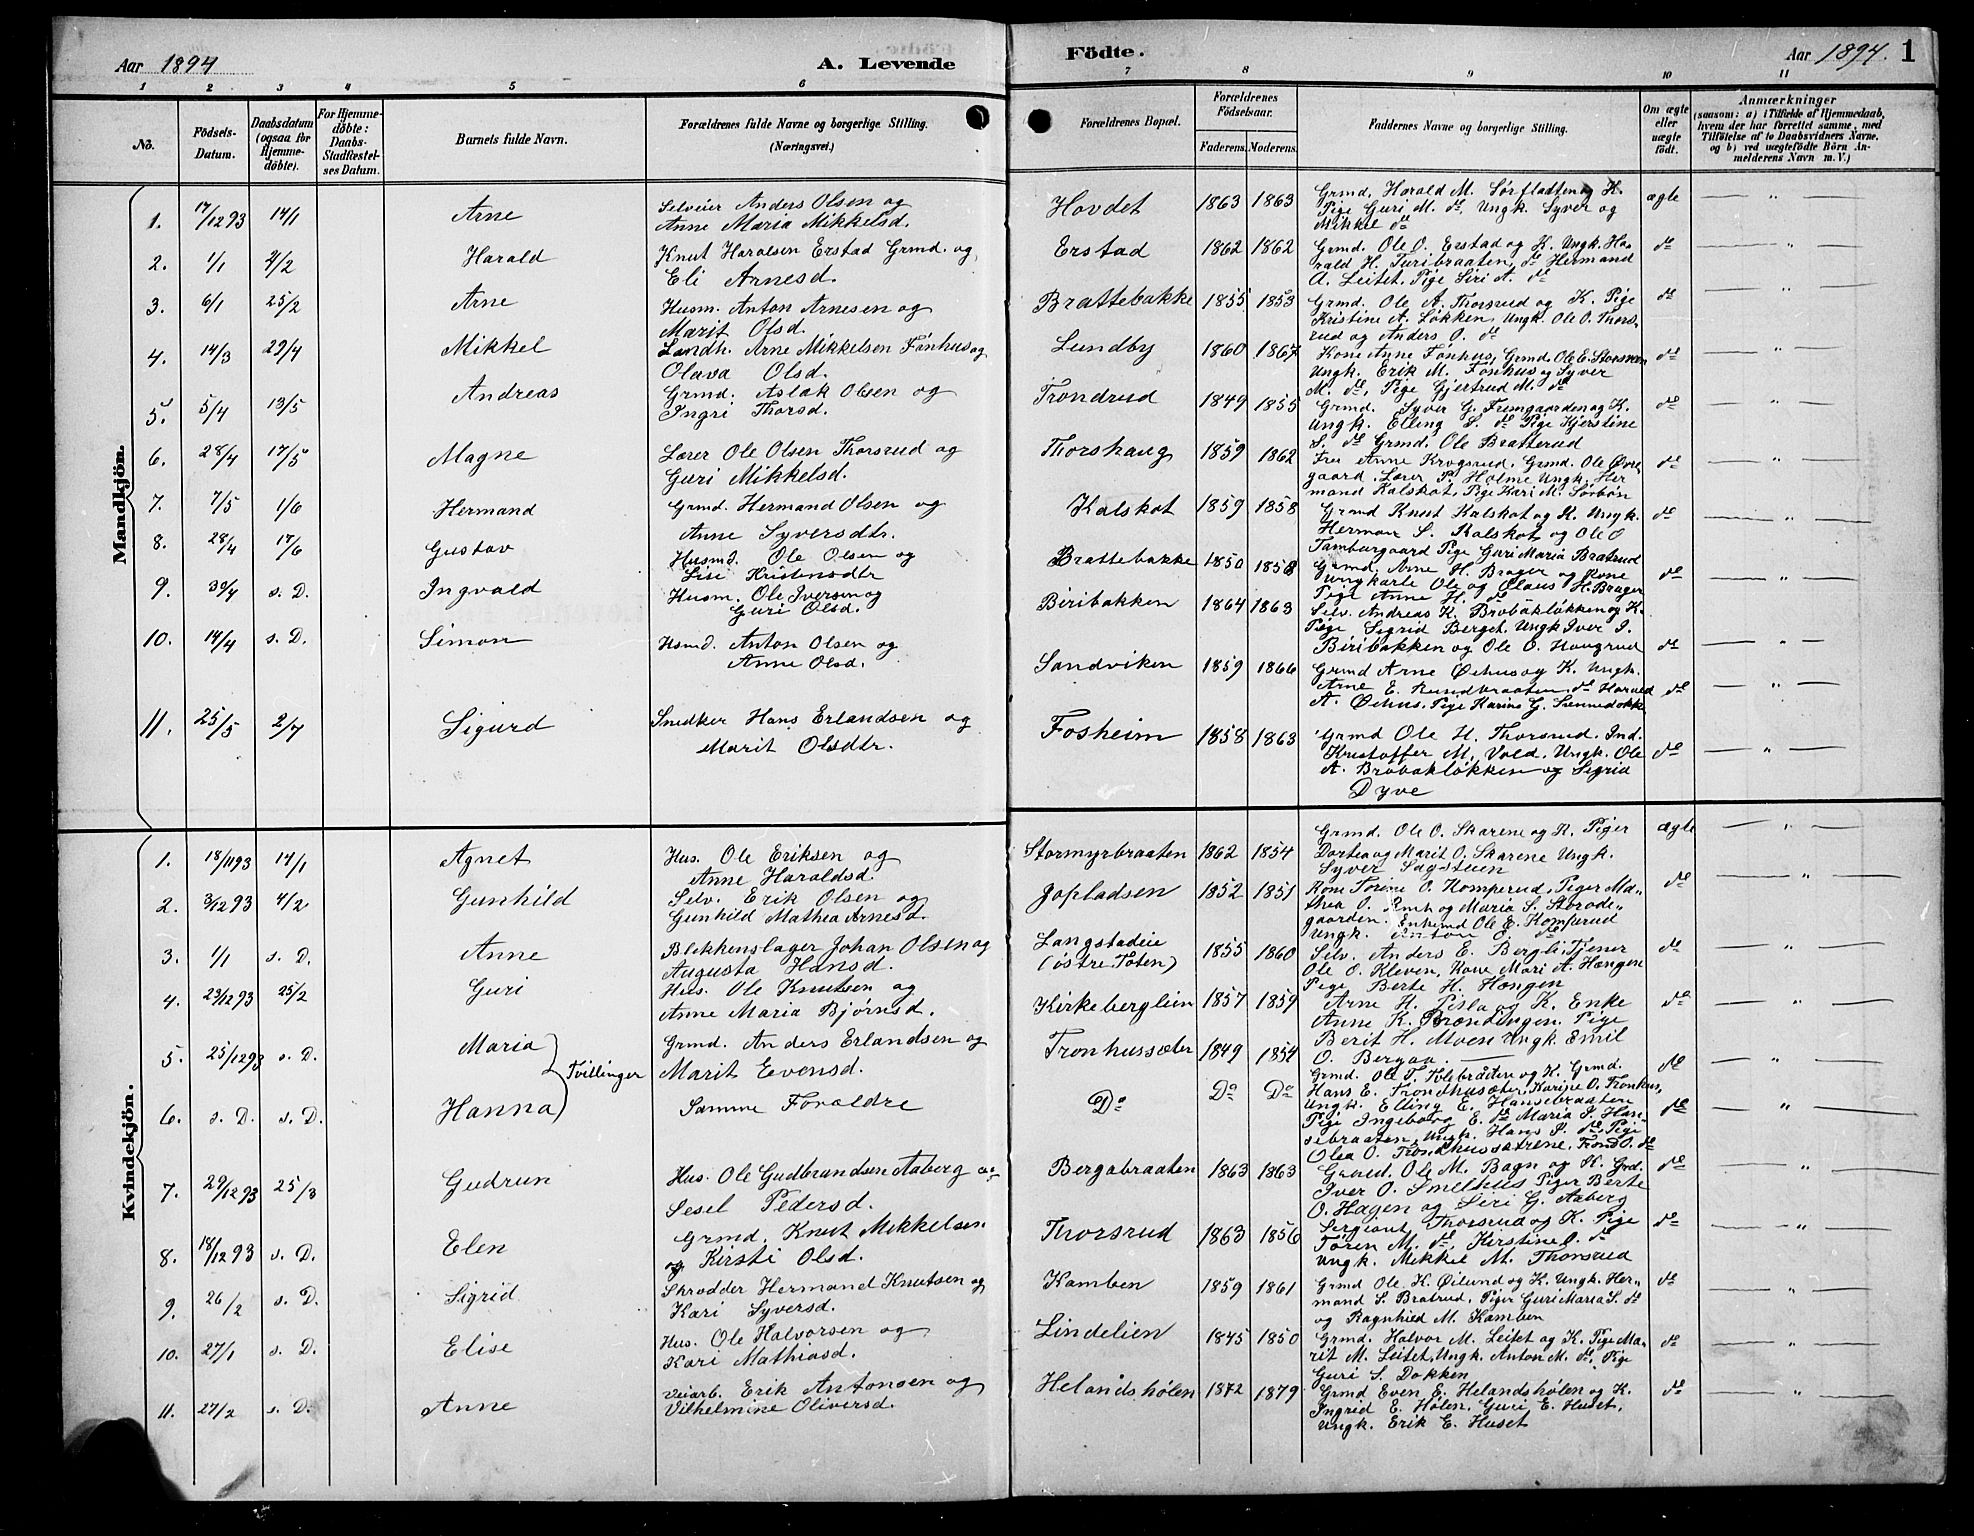 Aar 1894
A. Levende
Födte.
Aar 1894. 1
1 2 3 4 5 6 7 8 9 10 11
No.
Födsels-Datum.
Daabsdatum (ogsaa for Hjemmedöbte).
For Hjemmedöbte: Daabs-Stadfæstelses Datum.
Barnets fulde Navn.
Forældrenes fulde Navne og borgerlige Stilling.
(Næringsvei.)
Forældrenes Bopæl.
Forældrenes Födselsaar.
Faderens. Moderens.
Faddernes Navne og borgerlige Stilling.
Om ægte eller uægte födt.
Anmærkninger
(saasom: a) i Tilfælde af Hjemmedaab,
hvem der har forrettet samme, med
Tilföielse af to Daabsvidners Navne,
og b) ved uægtefödte Börn An-
melderens Navn m. V.)
Mandkjön.
1. 17/12 93 14/1 Arne Selveier Anders Olsen og
Anne Maria Mikkelsd. Hovdet 1863 1863 Grmd. Harald M. Sørfladten og K.
Pige Guri M. do, Ungk. Syver og
Mikkel do ægte
2. 1/1 2/2 Harald Knut Haralsen Erstad Grmd. og
Eli Arnesd. Erstad 1862 1862 Grmd. Ole O. Erstad og K. Ungk. Ha-
rald H. Turibraaten, do Hermand
A. Leitet, Pige Siri A. do do
3. 6/1 25/2 Arne Husm. Anton Arnesen og
Marit Olsd. Brattebakke 1855 1853 Grmd. Ole A. Thorsrud og K. Pige
Kristine A. Løkken, Ungk. Ole O. Thors-
rud og Anders O. do do
4. 14/3 29/4 Mikkel Landh. Arne Mikkelsen Fønhus og
Olava Olsd. Lundby 1860 1867 Kone Anne Fønhus, Grmd. Ole E. Storsveen
Ungk. Erik M. Fønhus og Syver
M. do, Pige Gjertrud M. do do
5. 5/4 13/5 Andreas Grmd. Aslak Olsen og
Ingri Thorsd. Trondrud 1849 1855 Grmd. Syver G. Fremgaarden og K.
Ungk. Elling S. do Pige Kjerstine
S. do Grmd. Ole Bratterud do
6. 28/4 17/5 Magne Lærer Ole Olsen Thorsrud og
Guri Mikkelsd. Thorshaug 1859 1862 Fru Anne Krogsrud, Grmd. Ole Øvre-
gaard, Lærer P. Holme Ungk. Her
mand Kalskot, Pige Kari M. Sørbøn do
7. 7/5 1/6 Hermand Grmd. Hermand Olsen og
Anne Syversdtr. Kalskot 1859 1858 Grmd Knut Kalskot og K. Ungk.
Herman S. Kalskot og Ole O
Tamburgaard Pige Guri Maria Bratrud do
8. 28/4 17/6 Gustav Husmd. Ole Olsen og
Lise Kristensdtr Brattebakke 1850 1858 Grmd. Arne H. Brager og Kone
Ungkarle Ole og Claus H. Brager
Pige Anne H. do do
9. 30/4 s. D. Ingvald Husm. Ole Iversen og
Guri Olsd. Beribakken 1864 1863 Selv. Andreas K. Brøbakløkken og K.
Pige Sigrid Berget. Ungk Iver I.
Beribakken og Ole O. Haugrud do
10. 14/4 s. D. Simon Hsmd. Anton Olsen og
Anne Olsd. Sandviken 1859 1866 Grmd Arne Øihus og K. Ungk.
Arne E. Rundbraaten, do Harald
A. Øihus, Pige Karine G. do
11. 25/5 2/7 Sigurd Snedker Hans Erlandsen og
Marit Olsdtr. Fosheim 1858 1863 Grmd Ole H. Thorsrud, Ind.
Kristoffer M. Vold, Ungk. Ole
A. Brøbakløkken og Sigrid
Dyve do
Kvindekjön.
1. 18/11 93 14/1 Agnet Hus. Ole Eriksen og
Anne Haraldsd. Stormyrbraaten 1862 1854 Grmd. Ole O. Skarene og K. Piger
Dortea og Marit O. Skarene Ungk.
Syver Sagstuen ægte
2. 3/12 93 4/2 Gunhild Selv. Erik Olsen og
Gunhild Mathea Arnesd. Jopladsen 1852 1851 Kone Torine O. Komperud, Piger Ma-
thea O. og Maria S. Storode-
gaarden. Enkemd Ole E. Komperud
Ungk. Anton E. do do
3. 1/1 s. D. Anne Blikkenslager Johan Olsen og
Augusta Hansd. Langstadeie
(østre Toten) 1855 1860 Selv. Anders E. Bergli Tjener
Ole O. Kleven, Kone Mari A. Hængen
Pige Berte H. Hængen do
4. 23/12 93 25/2 Guri Hus. Ole Knutsen og
Anne Maria Bjørnsd. Kirkeberglien 1857 1859 Arne H. Pisla og K. Enke
Anne K. Brændingen. Pige
Berit H. Moen Ungk Emil
O. Bergaa. do
5. 25/12 93 s. D. Maria Tvillinger Grmd. Anders Erlandsen og
Marit Evensd. Tronhussæter 1849 1854 Grmd. Ole T. Tolebraaten og K. Grmd.
Hans E. Trondhusæter, Karine O. Tronhus,
Ungk. Elling E. Hansebraaten do
6. s. D. s. D. Hanna Samme Forældre Do Do Do Pige Ingeborg E. do Maria S. Han-
sebraaten, Ungk. Hans S. do, Pige
Olea O. Trondhussætrene, Trond O. do do
7. 29/12 93 25/3 Gudrun Hus. Ole Gudbrandsen Aaberg og
Sesel Pedersd. Bergabraaten 1863 1863 Grmd. Ole M. Bagn og K. Grd.
Iver O. Smelhus Piger Berte
O. Hagen og Siri G. Aaberg do
8. 18/12 93 s. D. Elen Grmd. Knut Mikkelsen
og Kirsti Olsd. Thorsrud 1863 1856 Sergiant Thorsrud og K. Pige
Toren M. do, Kirstine O. do
Ungk. Mikkel M. Thorsrud do
9. 26/2 s. D. Sigrid Skrædder Hermand Knutsen og
Kari Syversd. Kamben 1859 1861 Grmd Ole K. Øilund og K. Ungk. Her-
mand S. Bratrud, Piger Guri Maria S. do
og Ragnhild M. Kamben do
10. 27/1 s. D. Elise Hus. Ole Halvorsen og
Kari Mathiasd. Lindelien 1845 1850 Grmd. Halvor M. Leitet og K. Pige Ma-
rit M. Leitet, Ungk. Anton M. do, Pige
Guri S. Dokken do
11. 27/2 s. D. Anne Veiarb. Erik Antonsen og
Vilhelmine Oliversd. Helandshølen 1872 1879 Grmd Even E. Helandshølen og K.
Ingrid E. Hølen, Guri E. Huset,
Ungk. Erik E. Huset do